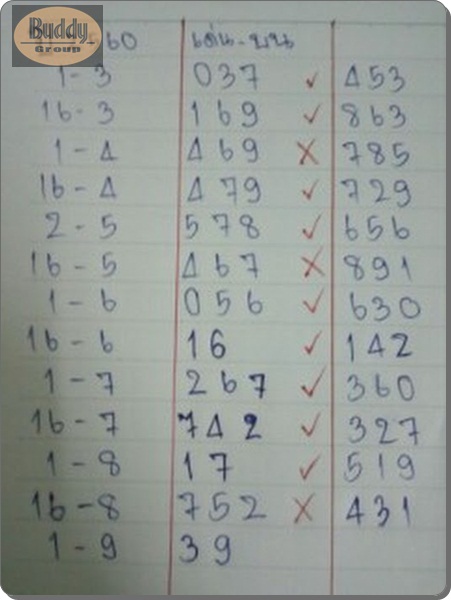 Buddy
Group
60 เด่น-บน
1-3 037 ✓ 453
16-3 169 ✓ 863
1-4 469 ✗ 785
16-4 479 ✓ 729
2-5 578 ✓ 656
16-5 467 ✗ 891
1-6 056 ✓ 630
16-6 16 ✓ 142
1-7 267 ✓ 360
16-7 742 ✓ 327
1-8 17 ✓ 519
16-8 752 ✗ 431
1-9 39